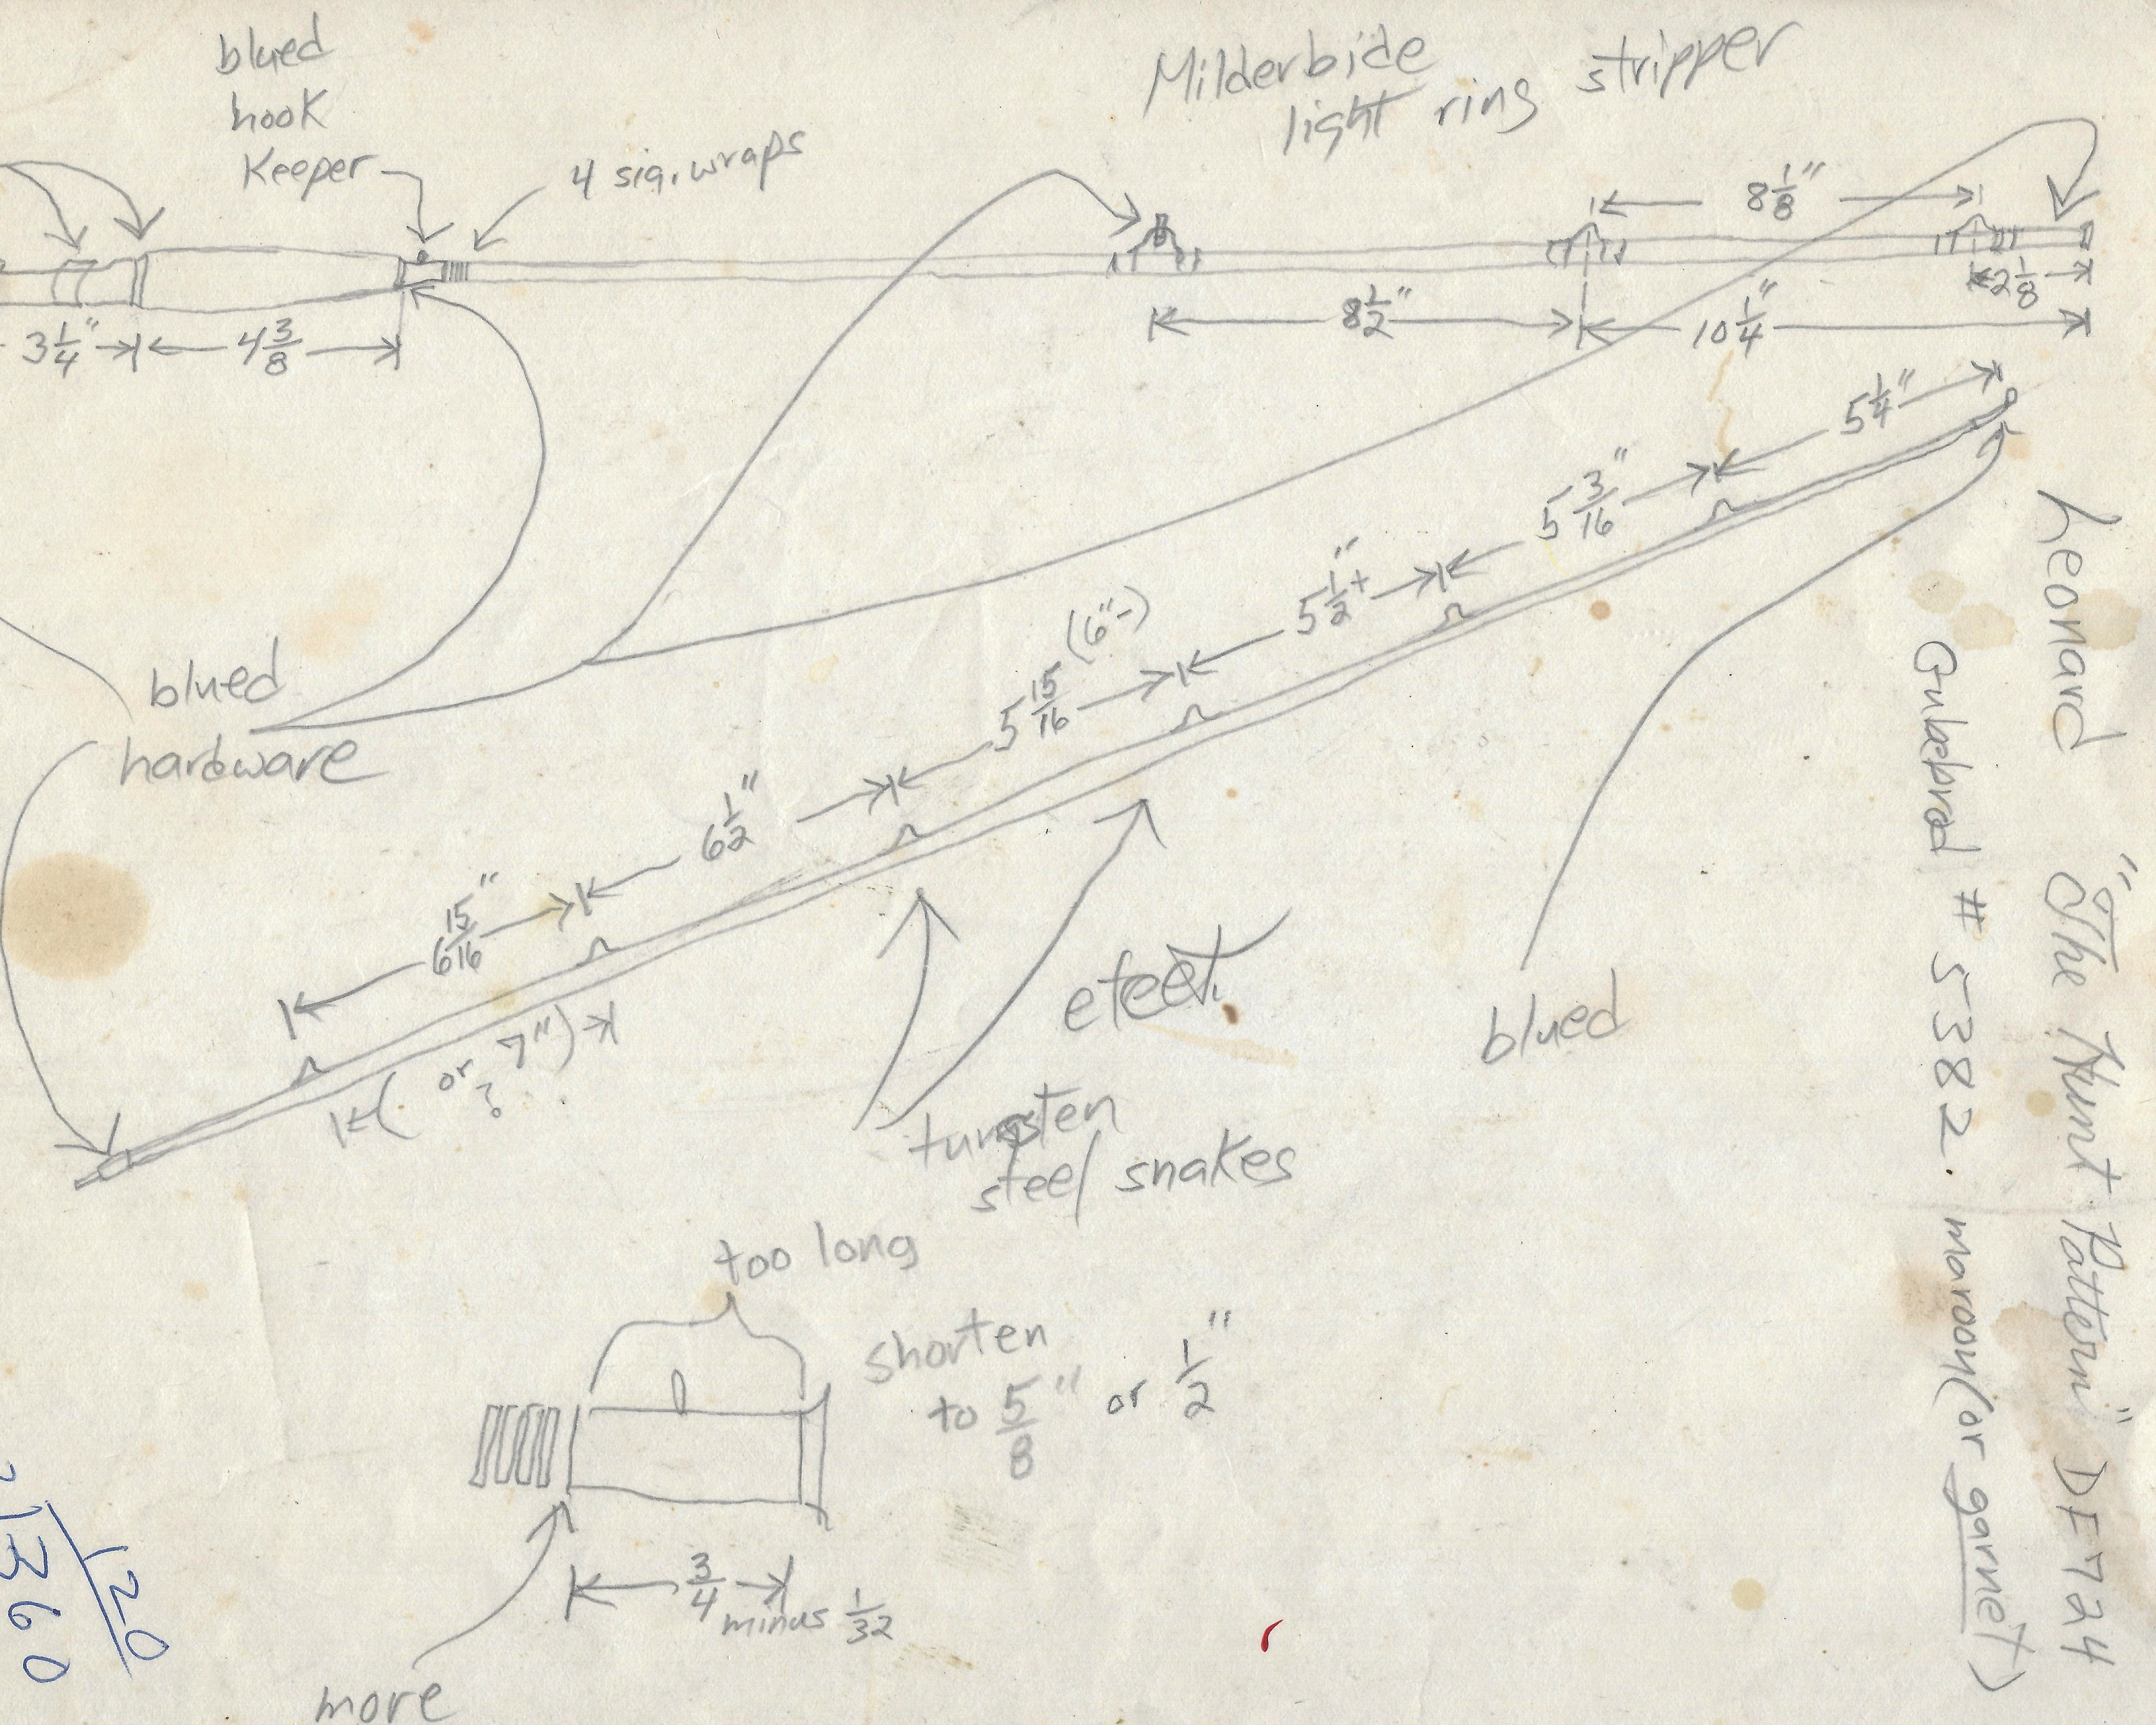 blued
hook
Keeper
4 sig. wraps
Milderbide
light ring stripper
8 1/8"
2 1/8
3 1/4"
4 3/8
8 1/2"
10 1/4"
5 1/4"
5 3/16"
5 1/2"+
(6"-)
5 15/16
6 1/2"
6 15/16"
(or 7")
?
blued
hardware
blued
tungsten
steel snakes
too long
shorten
to 5/8" or 1/2"
3/4
minus 1/32
more
Leonard "The Hunt Pattern" DF724
Gudebrod # 5382. maroon (or garnet)
120
1360